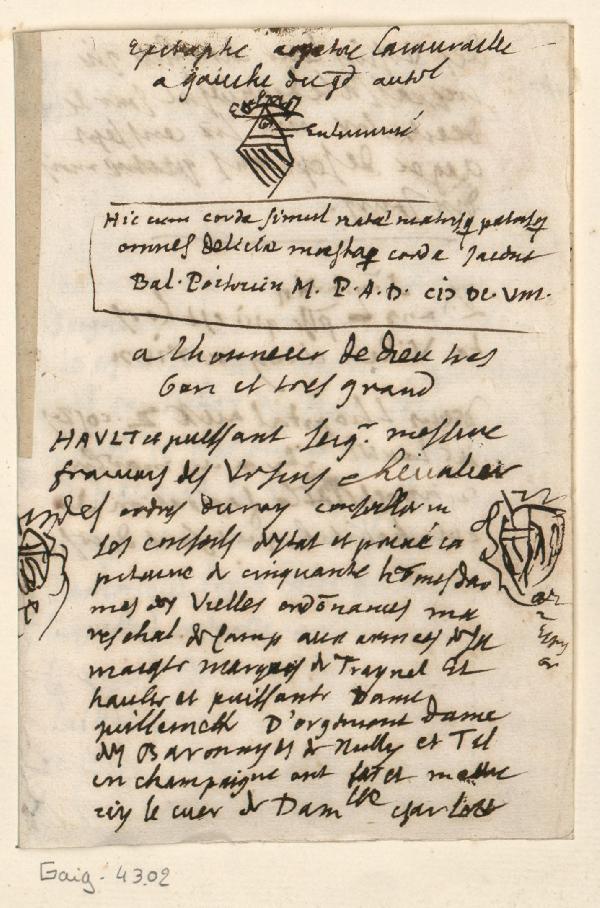 Epitaphe contre la muraille
a gauche du gd autel
enluminé
Hic cum corde simul natae matrisq patrisq
omnes deliciae moestaq corda jacent
Bal. Poitevin M. P. A. D. CIↃ DC VIII.
a lhonneur de dieu tres
bon et tres grand
HAVLT et puissant seigr. messire
francois des Ursins chevalier
des ordres du roy conseiller en
ses conseils destat et privé ca
pitaine de cinquante homes dar
mes des Vielles ordonances ma
reschal de camp aux armees de sa
maieste marquis de Traynel Et
haulte et puissante Dame
guillemette D'orgemont dame
des Baronnyes de Nully et Til
en champaigne ont fait mettre
icy le cuer de Damlle charlotte
Gaig. 4302